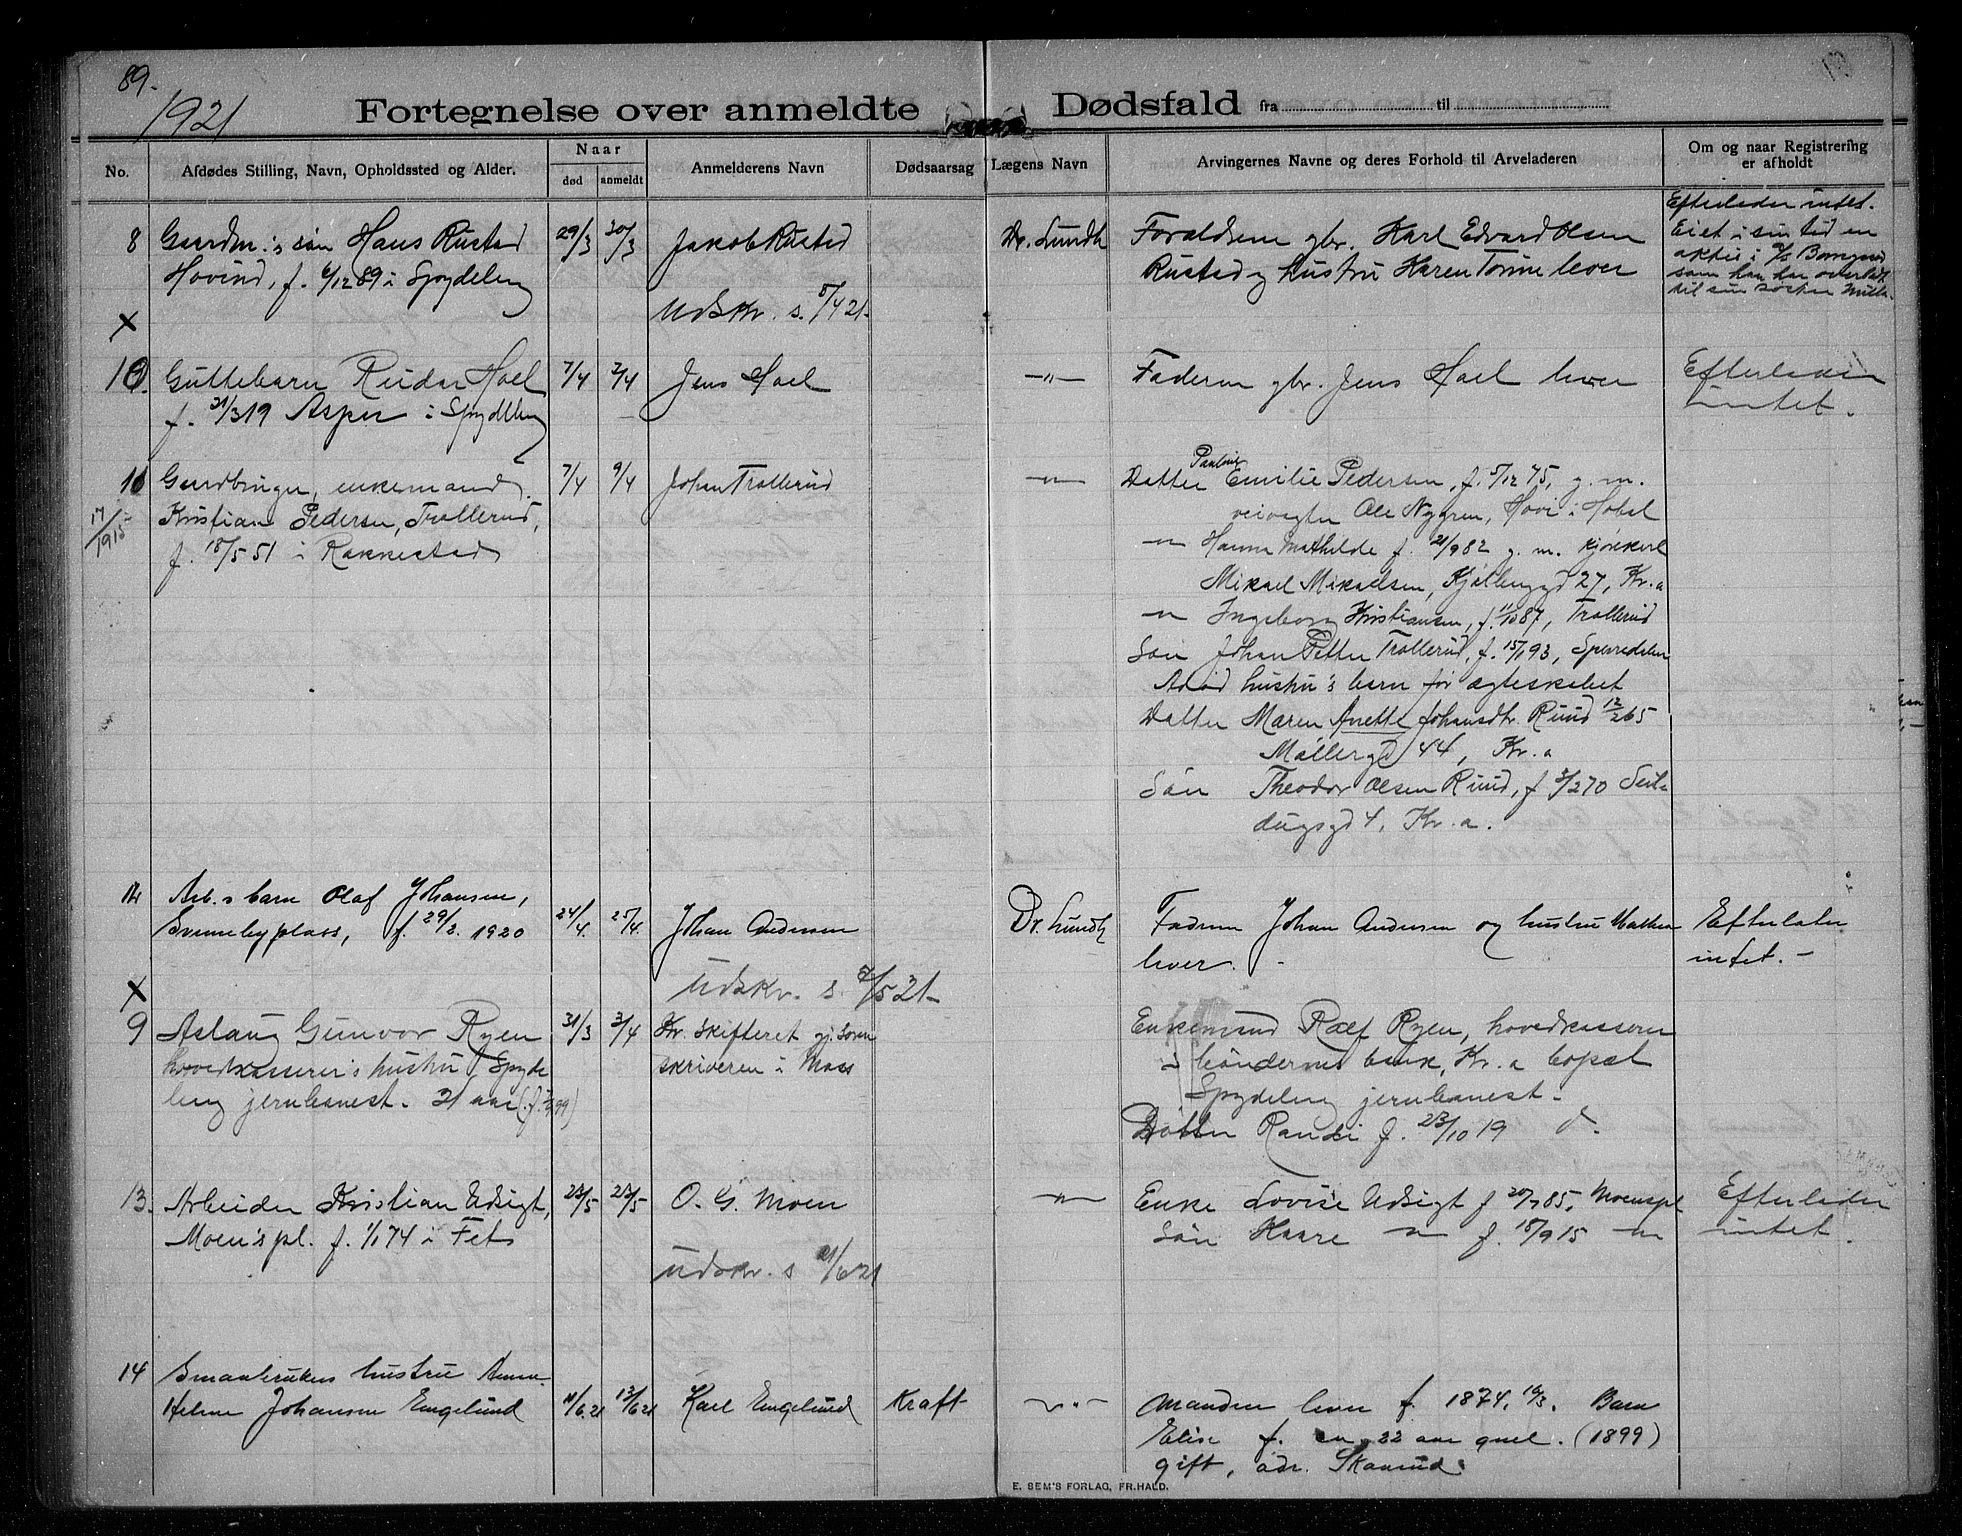 89.
1921
Fortegnelse over anmeldte Dødsfald fra til
No.
Afdødes Stilling, Navn, Opholdssted og Alder.
Naar
død
anmeldt
Anmelderens Navn
Dødsaarsag
Lægens Navn
Arvingernes Navne og deres Forhold til Arveladeren
Om og naar Registrering
er afholdt
8 Gaardm.'s søn Hans Rustad 29/3 30/3 Jakob Rustad Dr. Lundh Forældrene gbr. Karl Edvard Olsen
Hovind, f. 6/12 89 i Spydeberg
Rustad og hustru Karen Torine lever
Efterlader intet.
Eiet i sin tid en
aktie i
som han har overladt
til sin søster
X Udskr. s. 5/4 21-
10. Guttebarn Reidar Hoel 7/4 7/4 Jens Hoel -"- Faderen gbr. Jens Hoel lever Efterlader
f. 31/3 19 Asper i Spydeberg intet.
11 Gaardbruger, enkemand 7/4 9/4 Johan Trollerud -"- Datter Pauline Emilie Pedersen, f. 5/12 75, g. m.
17/1915 Kristian Pedersen, Trollerud, veivogter Ole Nygren, Hovi i Høbøl
f. 18/5 51 i Rakkestad -"- Hanna Mathilde f. 21/9 82 g. m. kjørekarl
Mikael Mikaelsen, 27, Kr.a
-"- Ingeborg Kristiansen, f. 11/10 87, Trollerud
Søn Johan Petter Trollerud, f. 15/1 93,
Avdød hustru's barn før ægteskabet
Datter Maren Anette Johansdtr. Ruud 12/2 65
Møllergd 44, Kr.a
Søn Theodor Olsen Ruud, f 3/2 70 Seil-
dugsgd 4, Kr.a.
12 Arb.s barn Olaf Johansen, 24/4. 25/4. Johan Andersen Dr. Lundh Faderen Johan Andersen og hustru Mathea Efterlater
plass, f. 29/2. 1920 lever. - intet. -
X Udskr. s. 2/5 21-
9 Aslaug Gunvor Ryen 31/3 3/4 Kr. skifteret gj. soren Enkemand Rolf Ryen, hovedkasserer
hovedkasserer's hustru Spyde skriveren i Moss i bøndernes bank, Kr.a bopæl
berg jernbanest. 21 aar Spydeberg jernbanest.
Datter Randi f. 23/10 19 d.
13. Arbeider Kristian Udsigt, 23/5 23/5 O. G. Moen -"- Enke Lovise Udsigt f 20/7 85, Moenspl Efterlader
Moenspl. f. 1/1 74 i Fet Søn Kaare -"- f. 18/9 15 -"- intet.
Udskr. s 21/6 21
14 Smaabrukers hustru Anna
Helene Johansen Engelund 11/6.21 13/6 21 Karl Engelund Kraft -"- Manden lever f. 1874, 10/3. Barn
Elise f. en 22 aar gml. (1899)
gift, adr. Skaarud.
E. SEM'S FORLAG, FR.HALD.